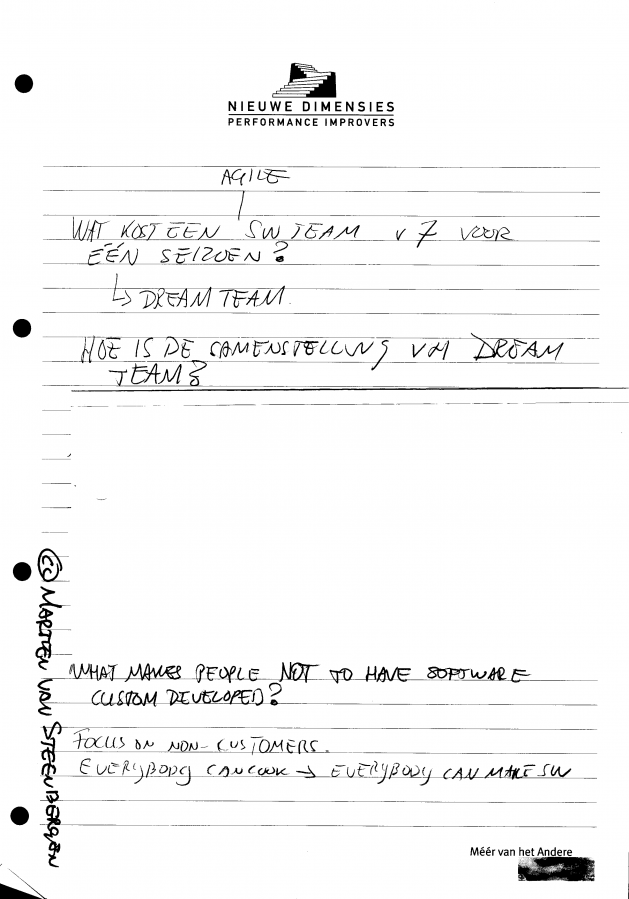 NIEUWE DIMENSIES
PERFORMANCE IMPROVERS
AGILE
WAT KOST EEN SW TEAM v 7 VOOR
ÉÉN SEIZOEN?
↳ DREAM TEAM.
HOE IS DE SAMENSTELLING VAN DREAM
TEAM?
WHAT MAKES PEOPLE NOT TO HAVE SOFTWARE
CUSTOM DEVELOPED?
FOCUS ON NON-CUSTOMERS.
EVERYBODY CAN COOK → EVERYBODY CAN MAKE SW
(cc) MARTIEN VAN STEENBERGEN
Méér van het Andere